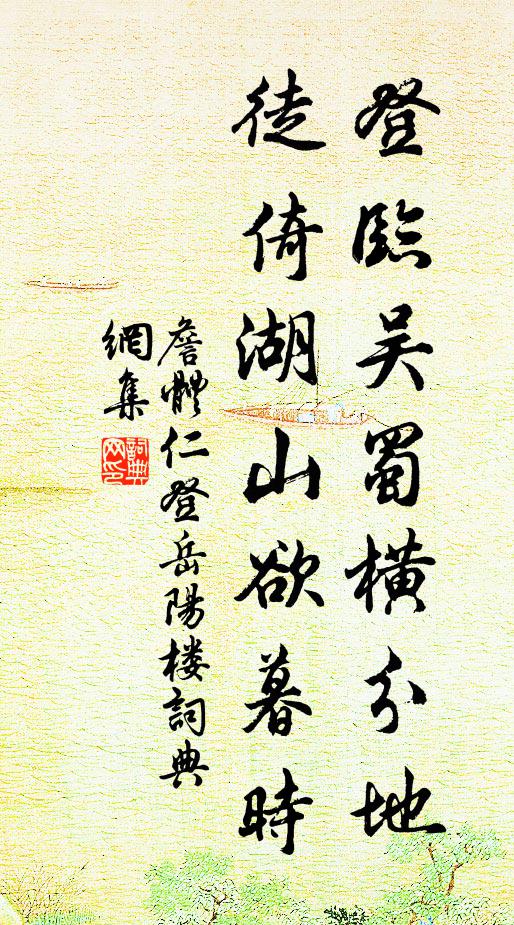 登臨吴蜀橫分地
徒倚湖山欲暮時
詹體仁登岳陽楼詞典
網集
詞典
网印